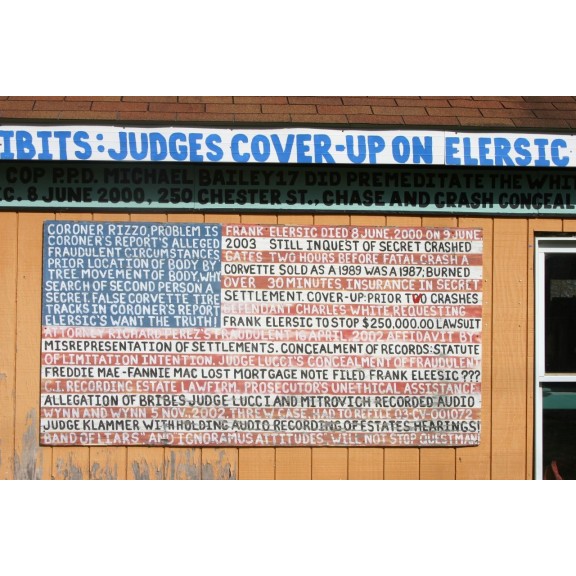 IBITS: JUDGES COVER-UP ON ELERSIC
COP P.P.D. MICHAEL BAILEY 17 DID PREMEDITATE THE WHI
C. 8 JUNE 2000, 250 CHESTER ST., CHASE AND CRASH CONCEAL
CORONER RIZZO, PROBLEM IS
CORONER'S REPORT'S ALLEGED
FRAUDULENT CIRCUMSTANCES
PRIOR LOCATION OF BODY BY
TREE MOVEMENT OF BODY, WHY
SEARCH OF SECOND PERSON A
SECRET. FALSE CORVETTE TIRE
TRACKS IN CORONER'S REPORT
ELERSIC'S WANT THE TRUTH!
FRANK ELERSIC DIED 8 JUNE, 2000 ON 9 JUNE
2003 STILL INQUEST OF SECRET CRASHED
GATES TWO HOURS BEFORE FATAL CRASH A
CORVETTE SOLD AS A 1989 WAS A 1987; BURNED
OVER 30 MINUTES INSURANCE IN SECRET
SETTLEMENT. COVER-UP: PRIOR TWO CRASHES
DEFENDANT CHARLES WHITE REQUESTING
FRANK ELERSIC TO STOP $250,000.00 LAWSUIT
ATTORNEY RICHARD PEREZ'S FRAUDULENT 16 APRIL, 2002 AFFIDAVIT BY
MISREPRESENTATION OF SETTLEMENTS. CONCEALMENT OF RECORDS: STATUTE
OF LIMITATION INTENTION, JUDGE LUCCI'S CONCEALMENT OF FRAUDULENT
FREDDIE MAE-FANNIE MAC LOST MORTGAGE NOTE FILED FRANK ELEESIC???
C.I. RECORDING ESTATE LAWFIRM, PROSECUTORS UNETHICAL ASSISTANCE
ALLEGATION OF BRIBES JUDGE LUCCI AND MITROVICH RECORDED AUDIO
WYNN AND WYNN 5 NOV. 2002, THREW CASE, HAD TO REFILE 03-CV-001072
JUDGE KLAMMER WITH HOLDING AUDIO RECORDING OF ESTATES HEARINGS!
BAND OF LIARS" AND IGNORAMUS ATTITUDES, WILL NOT STOP QUEST MAN